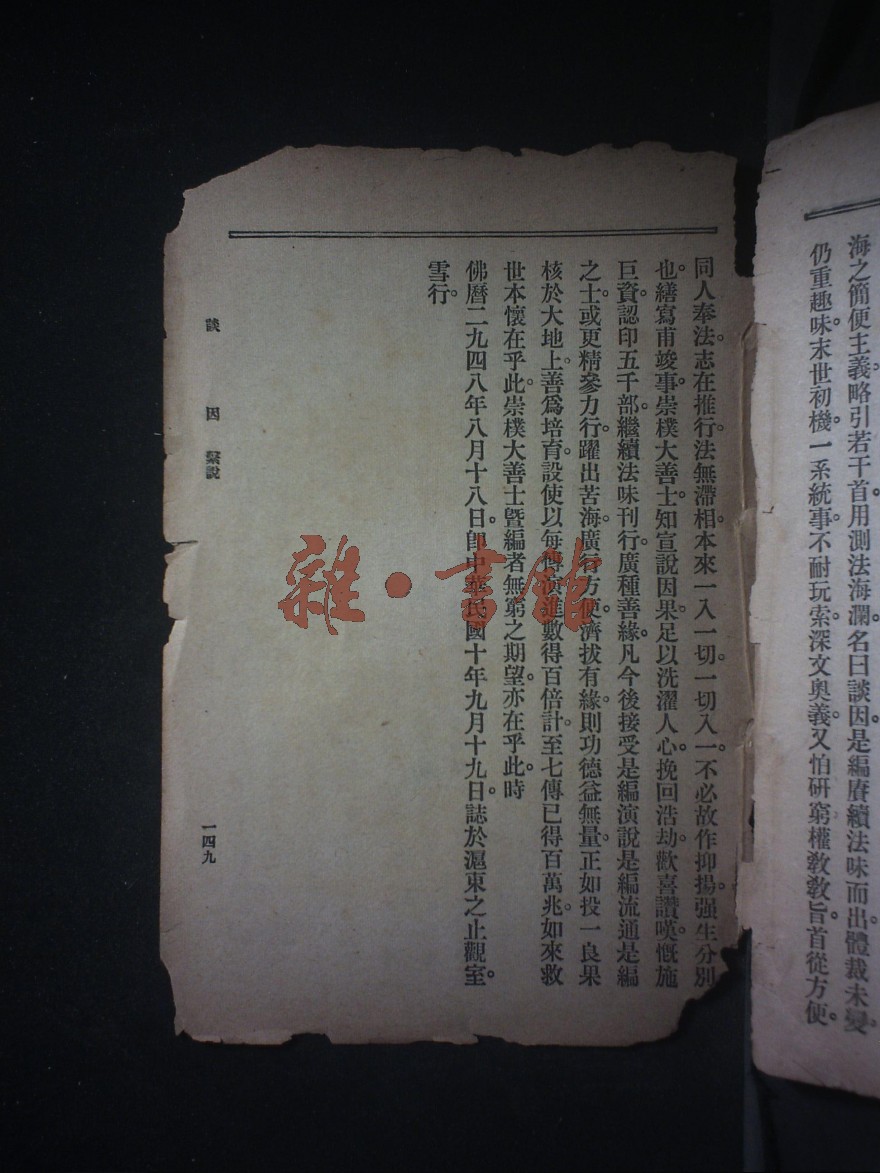 海之簡便主義。略引若干首。用測法海瀾。名曰談因。是編賡續法味而出。體裁未變。
仍重趣味。末世初機。一系統事。不耐玩索深文奧義。又怕研窮權教教旨。首從方便。
同人奉法。志在推行。法無滯相。本來一入一切。一切入一。不必故作抑揚。强生分別
也。繕寫甫竣事。崇樸大善士。知宣說因果。足以洗濯人心。挽回浩劫。歡喜讚嘆。慨施
巨資。認印五千部。繼續法味刊行。廣種善緣。凡今後接受是編。演說是編。流通是編
之士。或更精參力行。躍出苦海。廣行方便。濟拔有緣。則功德益無量。正如投一良果
核於大地上。善爲培育。設使以每傳演進數。得百倍計。至七傳已得百萬兆。如來救
世本懷在乎此。崇樸大善士暨編者無窮之期望。亦在乎此。時
佛曆二九四八年八月十八日。卽中華民國十年九月十九日。誌於滬東之止觀室。
雪行。
談因 繫說
一四九
雜·書館